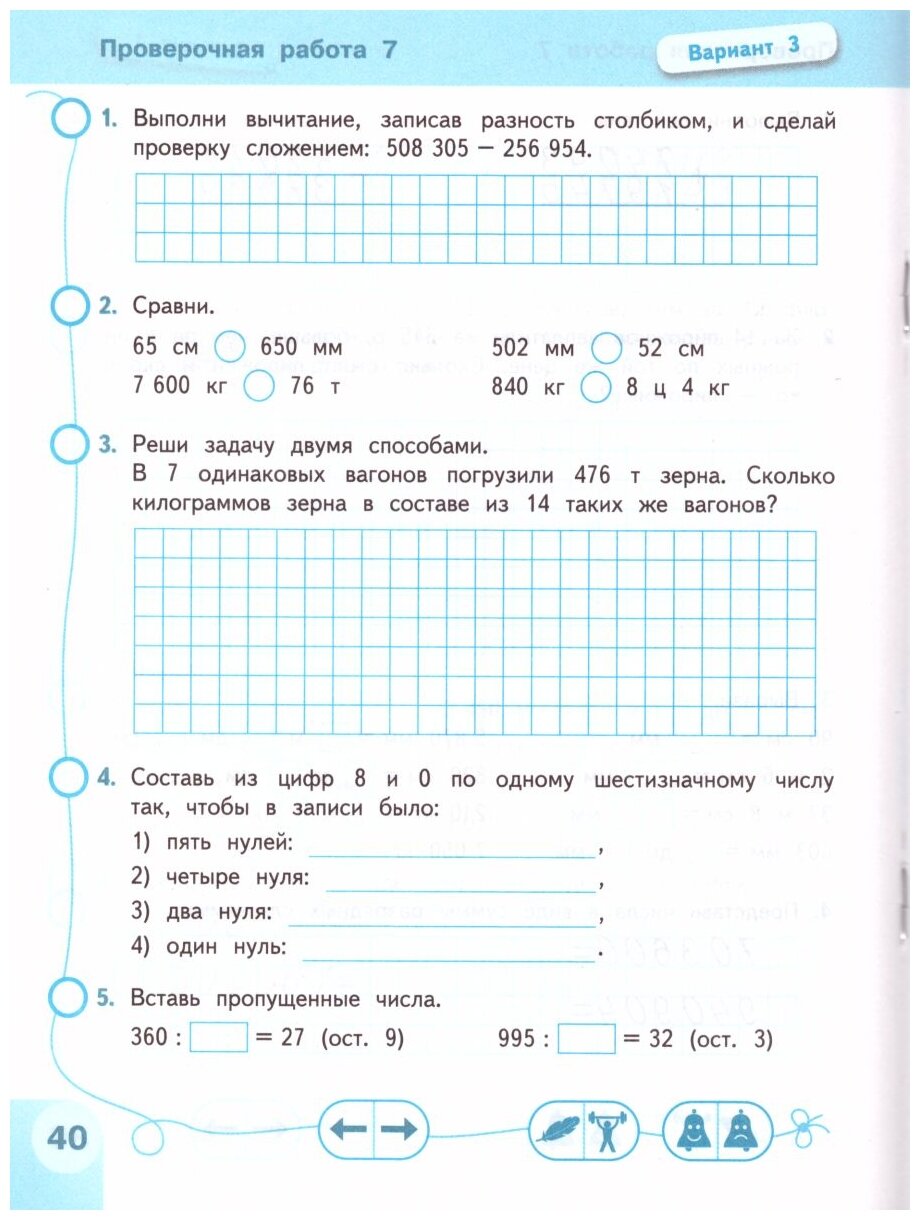 Проверочная работа 7
Вариант 3
1. Выполни вычитание, записав разность столбиком, и сделай
проверку сложением: 508 305 − 256 954.
2. Сравни.
65 см 650 мм 502 мм 52 см
7 600 кг 76 т 840 кг 8 ц 4 кг
3. Реши задачу двумя способами.
В 7 одинаковых вагонов погрузили 476 т зерна. Сколько
килограммов зерна в составе из 14 таких же вагонов?
4. Составь из цифр 8 и 0 по одному шестизначному числу
так, чтобы в записи было:
1) пять нулей: ,
2) четыре нуля: ,
3) два нуля: ,
4) один нуль: .
5. Вставь пропущенные числа.
360 : = 27 (ост. 9) 995 : = 32 (ост. 3)
40